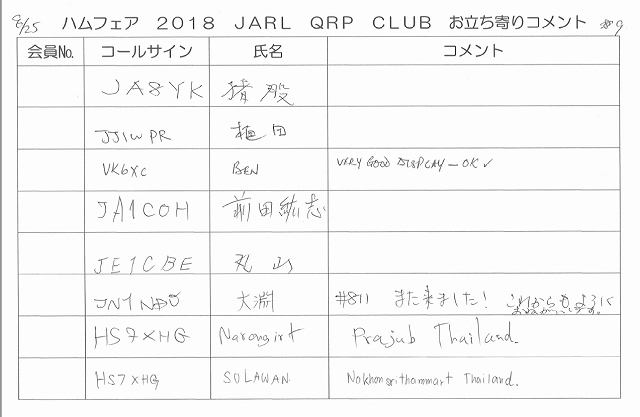 8/25 ハムフェア 2018 JARL QRP CLUB お立ち寄りコメント #9
会員No. コールサイン 氏名 コメント
JA8YK 猪股
JJ1WPR 植田
VK6XC BEN VERY GOOD DISPLAY - OK ✓
JA1COH 前田紘志
JE1CBE 丸山
大淵 #811 また来ました! これからもよろしく
おねがいします。
HS7XHG Narongirt Prajub Thailand.
HS7XHG SULAWAN Nakhonsrithammart Thailand.